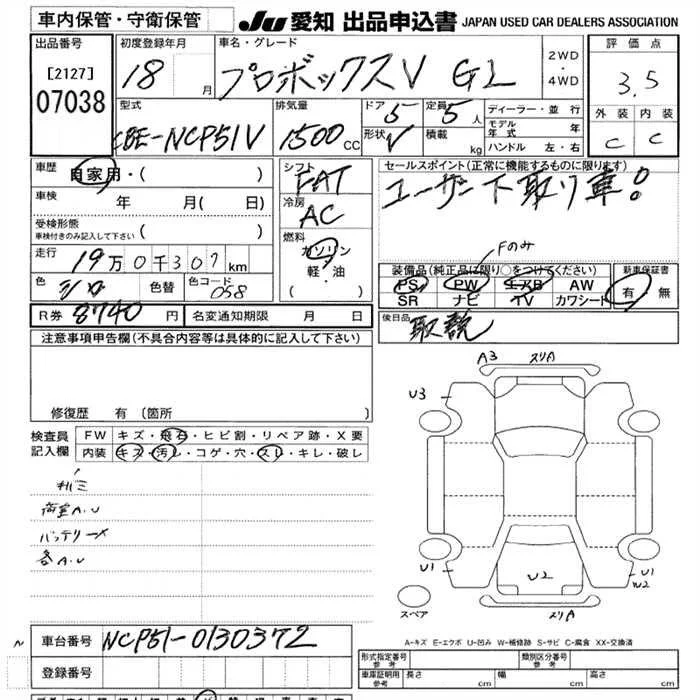 車内保管・守衛保管 JU 愛知 出品申込書 JAPAN USED CAR DEALERS ASSOCIATION
出品番号 [2127] 07038
初度登録年月 18 月
車名・グレード プロボックスV GL
2WD
4WD
評価点 3.5
外装 内装
C C
型式 CBE-NCP51V
排気量 1500 CC
ドア 5
形状 V
定員 5 人
積載 kg
ディーラー・並行
モデル年式 年
ハンドル 左・右
車歴 自家用・( )
車検 年 月( 日)
受検形態 ( )
車検付きのみ記入して下さい
走行 19万0千307km
色 シロ 色替 色コード 058
シフト FAT
冷房 AC
燃料 ガソリン
軽・油
( )
セールスポイント(正常に機能するものに限ります)
ユーザー下取り車!
Fのみ
装備品(純正品に限り○をつけてください)
PS PW エアB AW
SR ナビ TV カワシート
新車保証書
有・無
後日品 取説
R券 8740 円 名変通知期限 月 日
注意事項申告欄(不具合内容等は具体的に記入して下さい)
修復歴 有(箇所
検査員記入欄
FW キズ・飛石・ヒビ割・リペア跡・X要
内装 キズ・汚レ・コゲ・穴・スレ・キレ・破レ
荷室A.U
バッテリーメ
各A.U
A3 スリA
U3
U1
U2
U1
W2
スリA
スペア
A-キズ E-エクボ U-凹み W-補修跡 S-サビ C-腐食 XX-交換済
車台番号 NCP51-0130372
登録番号
形式指定番号 参考
類別区分番号 参考
車庫証明用 参考 長さ cm 幅 cm 高さ cm